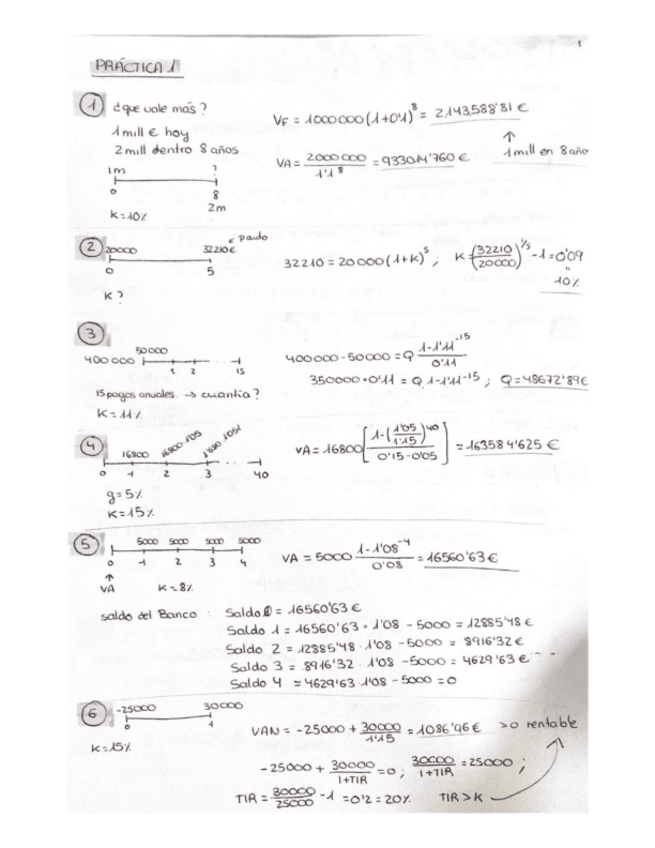 1
PRÁCTICA 1
① ¿que vale más?
1 mill € hoy
2 mill dentro 8 años
1m ?
0 8
2m
K=10%
VF = 1000000 (1+0'1)^8 = 2,143,588'81 €
↑
1 mill en 8 año
VA = 2000000 / 1'1^8 = 933014'760 €
② 20000 32210€ pardo
0 5
K?
32210 = 20000 (1+K)^5 ; K = (32210/20000)^1/5 - 1 = 0'09
"
10%
③
50000
400000 1 2 ... 15
15 pagos anuales → cuantia?
K=11%
400000 - 50000 = Q 1-1'11^-15 / 0'11
350000·0'11 = Q 1-1'11^-15 ; Q = 48672'89€
④ 16800 16800·1'05
0 1 2 3 ... 40
g=5%
K=15%
VA = 16800 [1-(1'05/1'15)^40 / 0'15-0'05] = 163584'625 €
⑤ 5000 5000 5000 5000
0 1 2 3 4
↑
VA K=8%
VA = 5000 1-1'08^-4 / 0'08 = 16560'63 €
saldo del Banco : Saldo 0 = 16560'63 €
Saldo 1 = 16560'63 · 1'08 - 5000 = 12885'48 €
Saldo 2 = 12885'48 · 1'08 - 5000 = 8916'32 €
Saldo 3 = 8916'32 · 1'08 - 5000 = 4629'63 €
Saldo 4 = 4629'63 · 1'08 - 5000 = 0
⑥ -25000 30000
0 1
K=15%
VAN = -25000 + 30000/1'15 = 1086'96 € >0 rentable
-25000 + 30000/1+TIR = 0 ; 30000/1+TIR = 25000 ;
TIR = 30000/25000 - 1 = 0'2 = 20% TIR > K